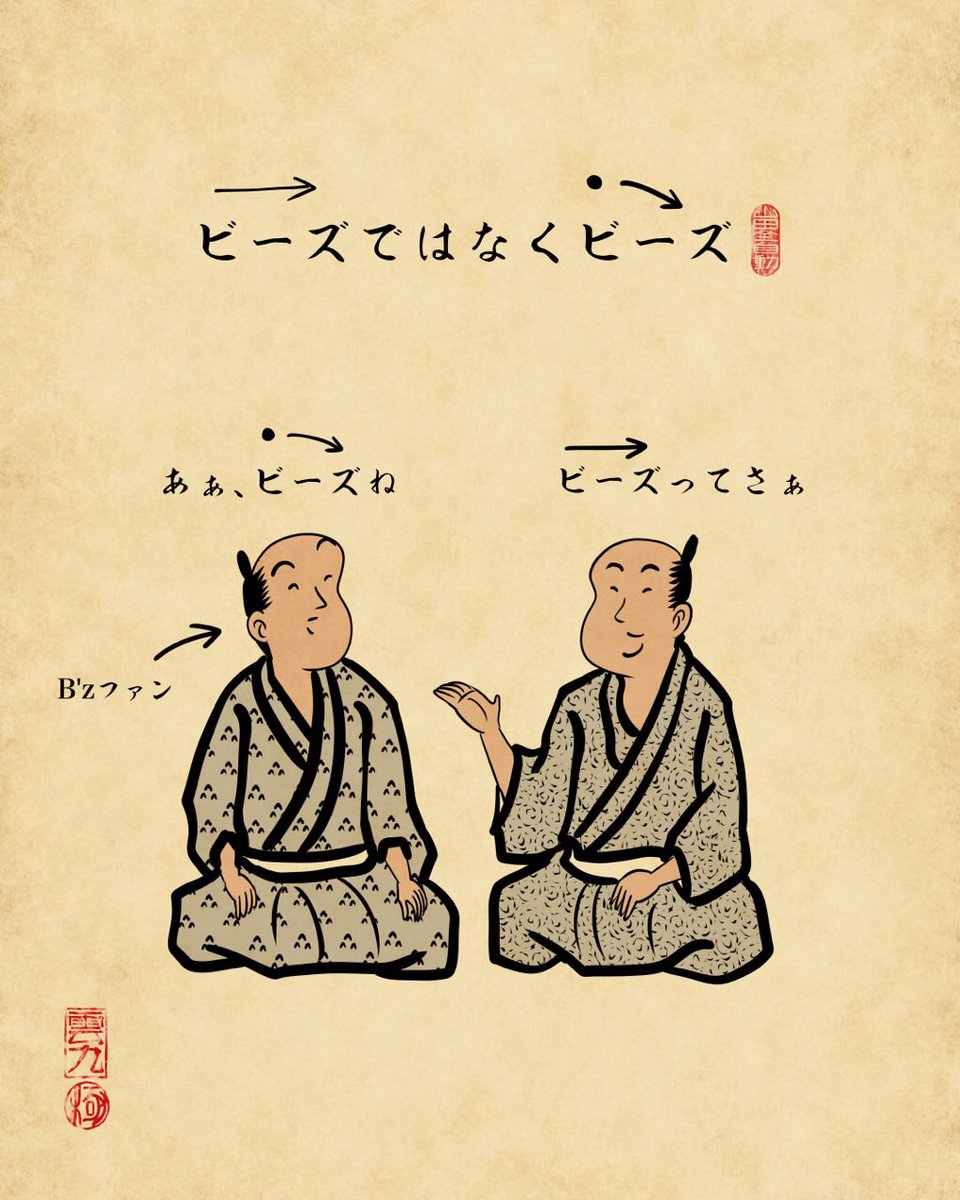 ビーズではなくビーズ
あぁ、ビーズね
ビーズってさぁ
B'zファン